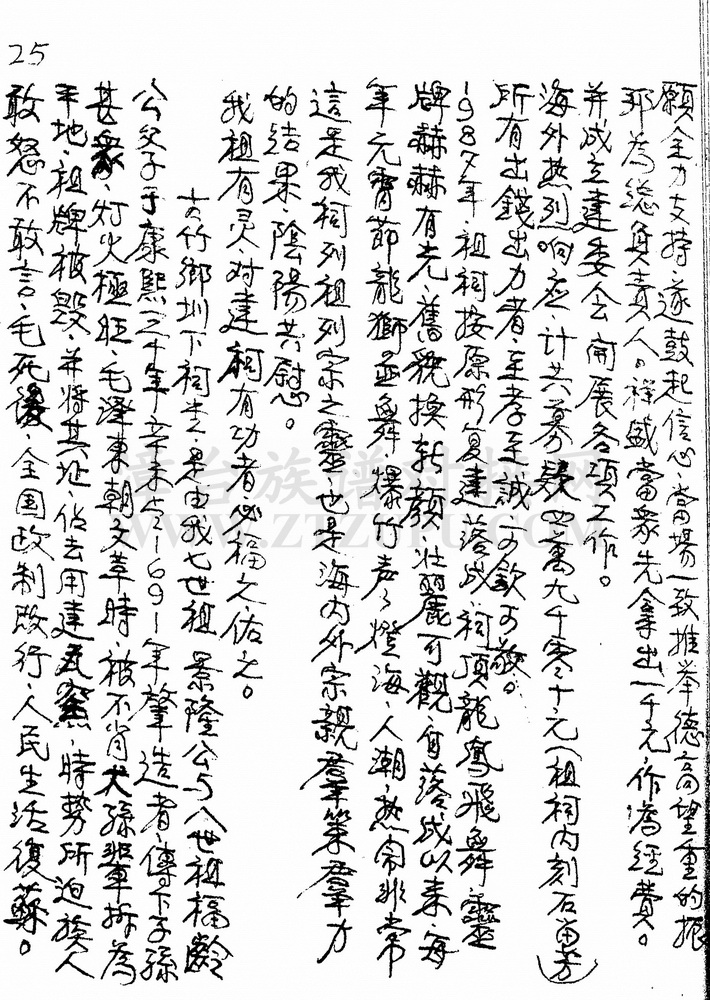 願全力支持、遂鼓起信心、當場一致推举德高望重的振
邦為總負責人。祥盛當衆先拿出一千元、作為經費。
并成立建委会開展各項工作。
海外热烈响应、计共募獲四萬九千零十元（祖祠内刻石留芳）
所有出錢出力者、至孝至誠、可欽可敬。
1987年、祖祠按原形复建落成、祠頂龍鳳飛舞、靈
牌赫赫有光、舊貌換新顏、壯麗可觀、自落成以来、每
年元宵節龍獅並舞、爆竹声声、燈海、人潮、热闹非常
這是我祠列祖列宗之靈、也是海内外宗親羣策羣力
的结果、陰陽共慰。
我祖有灵、对建祠有功者、必福之佑之。
古竹鄉圳下祠生、是由我七世祖 景隆公与八世祖福齡
公父子于康熙三十年辛未即1691年肇造者、傳下子孫
甚衆、灯火極旺、毛澤東朝文革時、被不肖犬孫輩拆為
平地、祖牌被毁、并將其址、佔去用建瓦窯、時勢所迫族人
敢怒不敢言、毛死後、全国政制改行、人民生活復蘇。
25
章台族谱对接网
WWW.ZTZUPU.COM